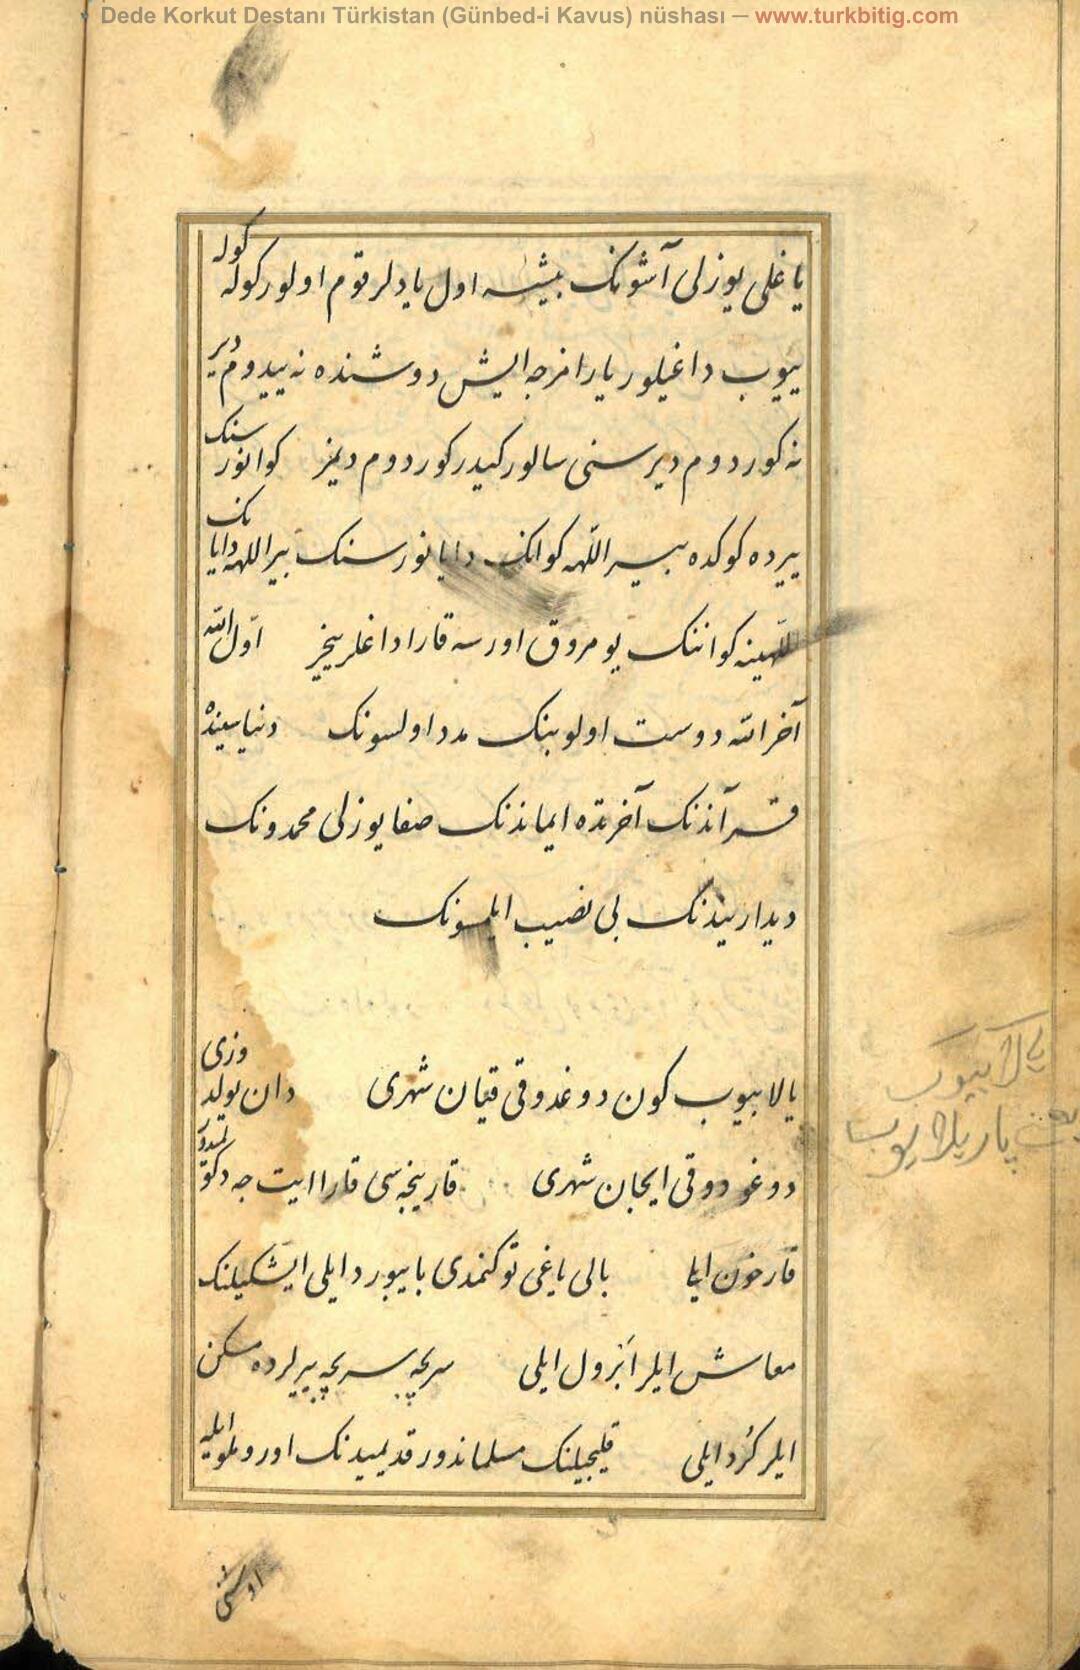 Dede Korkut Destanı Türkistan (Günbed-i Kavus) nüshası — www.turkbitig.com
یاغلی یوزلی آشونک بیشسه اول یادلر قوم اولور کوله کوله
ییوب داغیلور یارامزجه ایش دوشنده نه ییدوم دیر
نه کوردوم دیر سنی سالور کیدر کوردوم دیمز کوانور سنک
ییرده کوکده بیر اللّهه کوانک دایانورسنک بیر اللهه دایانک
اللّهینه کواننک یومروق اورسه قارا داغلر ییخر اوّل الله
آخر الله دوست اولوبنک مدد اولسونک دنیاسینده
قرآندنک آخرتده ایماندنک صفا یوزلی محمدونک
دیداریندنک بی نصیب ایلمسونک
یالابیوب کون دوغدوقی قیان شهری دان یولدوزی
دوغدوقی ایجان شهری قارینجه سی قارا ایت جه
قارخون ایلی بالی یاغی توکنمدی باییورد ایلی ایشکیلنک
معاش ایلر ابزول ایلی سریچه سریچه ییرلرده مسکن
ایلر کُرد ایلی قلیجیلنک مسلماندور قدیمیدنک
یالابیوب